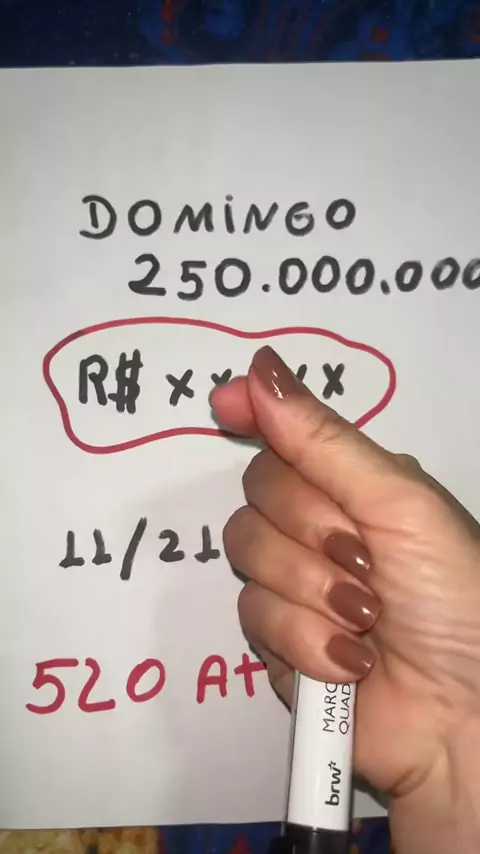 DOMINGO
250.000.000
R$ x x x
11/21
520 At
MARC
QUAD
brw